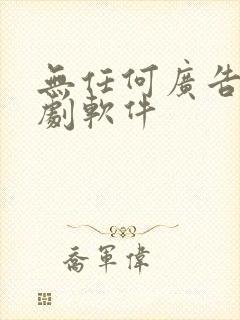 無任何廣告
劇軟件
喬軍偉